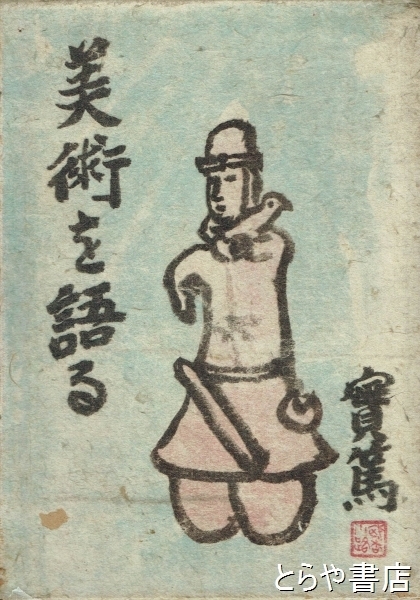 美術を語る
實篤
とらや書店